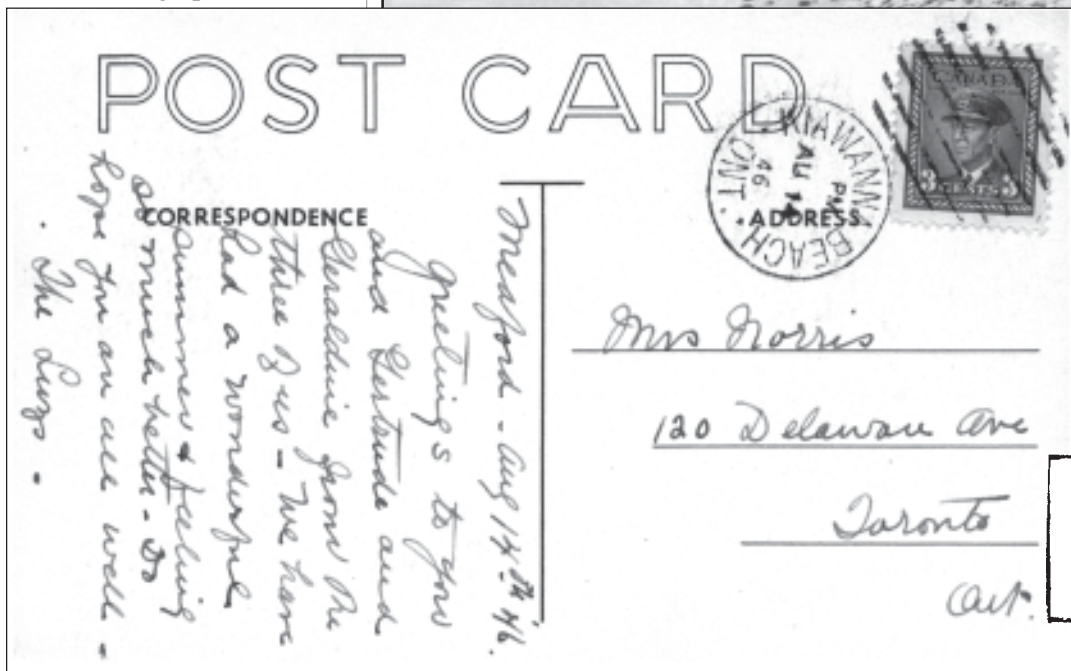 POST CARD
CORRESPONDENCE
ADDRESS
KIAWANN BEACH
PM
AU 14
46
ONT.
CANADA
3 CENTS 3
Meaford - Aug 14th 46.
Greetings to you
and Gertrude and
Geraldine from the
three of us - We have
had a wonderful
summer & feeling
so much better - Do
hope you are all well -
. The
Mrs Norris
120 Delaware Ave
Toronto
Ont.